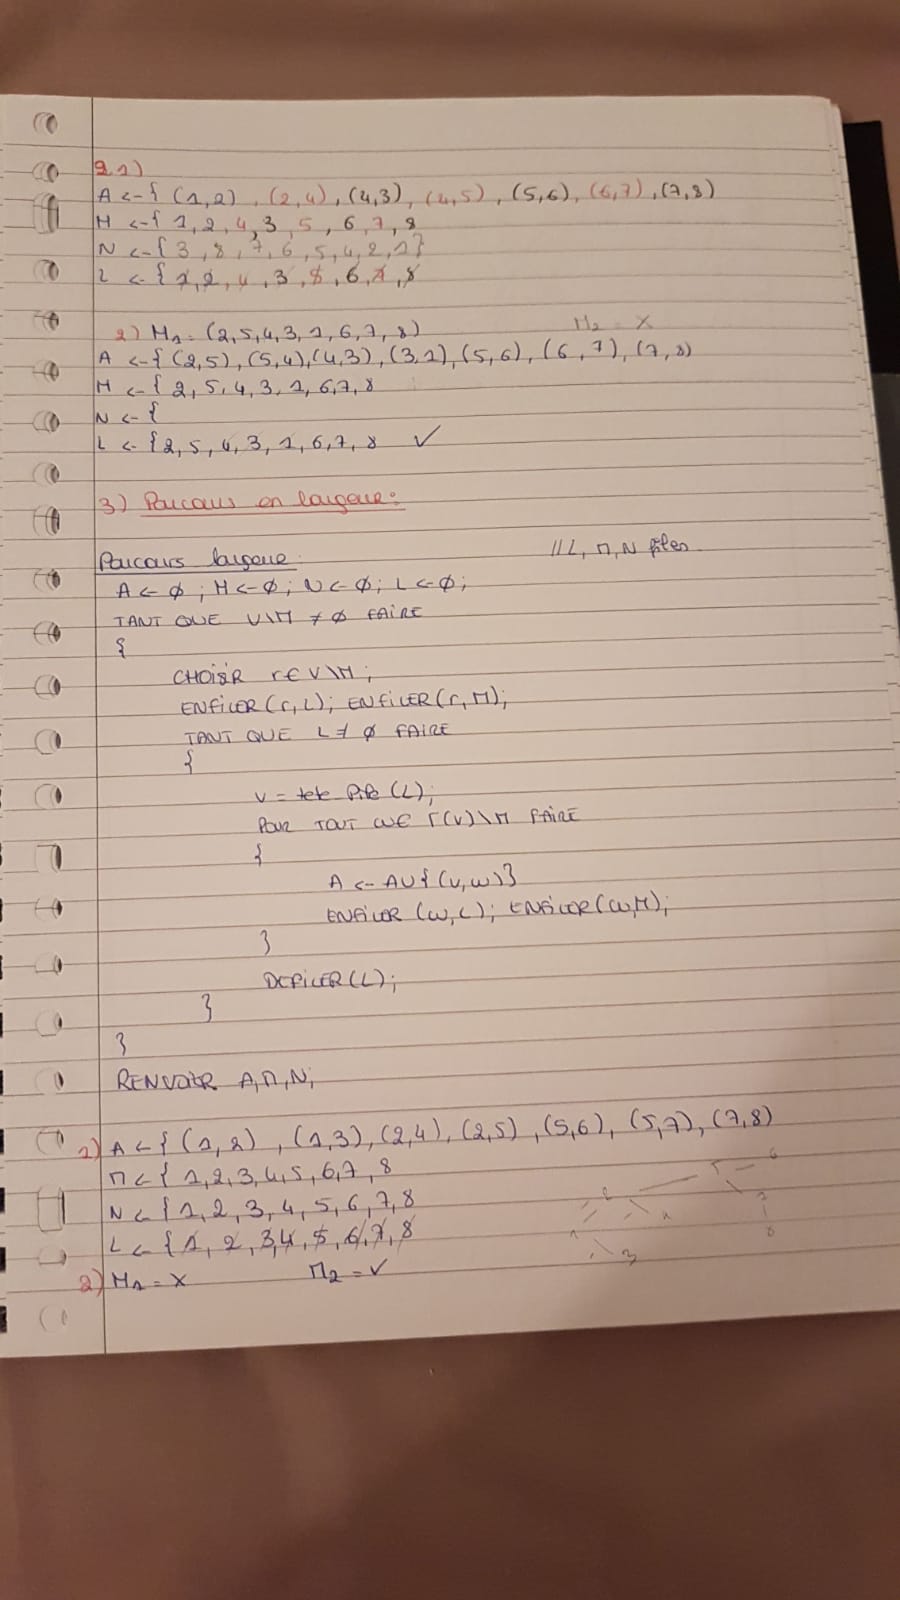 2.1)
A <-{ (1,2) , (2,4), (4,3), (4,5), (5,6), (6,7), (7,8)
M <-{ 1, 2, 4, 3, 5, 6, 7, 8
N <-{ 3, 8, 7, 6, 5, 4, 2, 1}
L <-{ 1, 2, 4, 3, 5, 6, 7, 8
2) M1 = (2,5,4,3,1,6,7,8) M2 = X
A <-{ (2,5), (5,4), (4,3), (3,1), (5,6), (6,7), (7,8)
M <-{ 2, 5, 4, 3, 1, 6, 7, 8
N <-{
L <-{ 2, 5, 4, 3, 1, 6, 7, 8 ✓
3) Parcours en largeur :
Parcours largeur : // L, M, N files
A <- ∅ ; M <- ∅ ; N <- ∅ ; L <- ∅ ;
TANT QUE V\M ≠ ∅ FAIRE
{
CHOISIR r ∈ V\M ;
ENFILER (r, L) ; ENFILER (r, M) ;
TANT QUE L ≠ ∅ FAIRE
{
v = tete Pile (L) ;
POUR TOUT w ∈ Γ(v)\M FAIRE
{
A <- A ∪ {(v, w)}
ENFILER (w, L) ; ENFILER (w, M) ;
}
DEFILER (L) ;
}
}
RENVOYER A, M, N ;
1) A <-{ (1,2) , (1,3), (2,4), (2,5), (5,6), (5,7), (7,8)
M <-{ 1, 2, 3, 4, 5, 6, 7, 8
N <-{ 1, 2, 3, 4, 5, 6, 7, 8
L <-{ 1, 2, 3, 4, 5, 6, 7, 8
2) M1 = X M2 = ✓